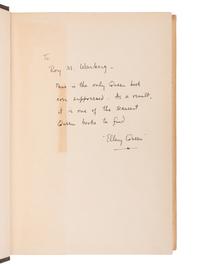 To
Roy M. Warberg –
This is the only Queen book
ever suppressed. As a result,
it is one of the scarcest
Queen books to find
"Ellery Queen"